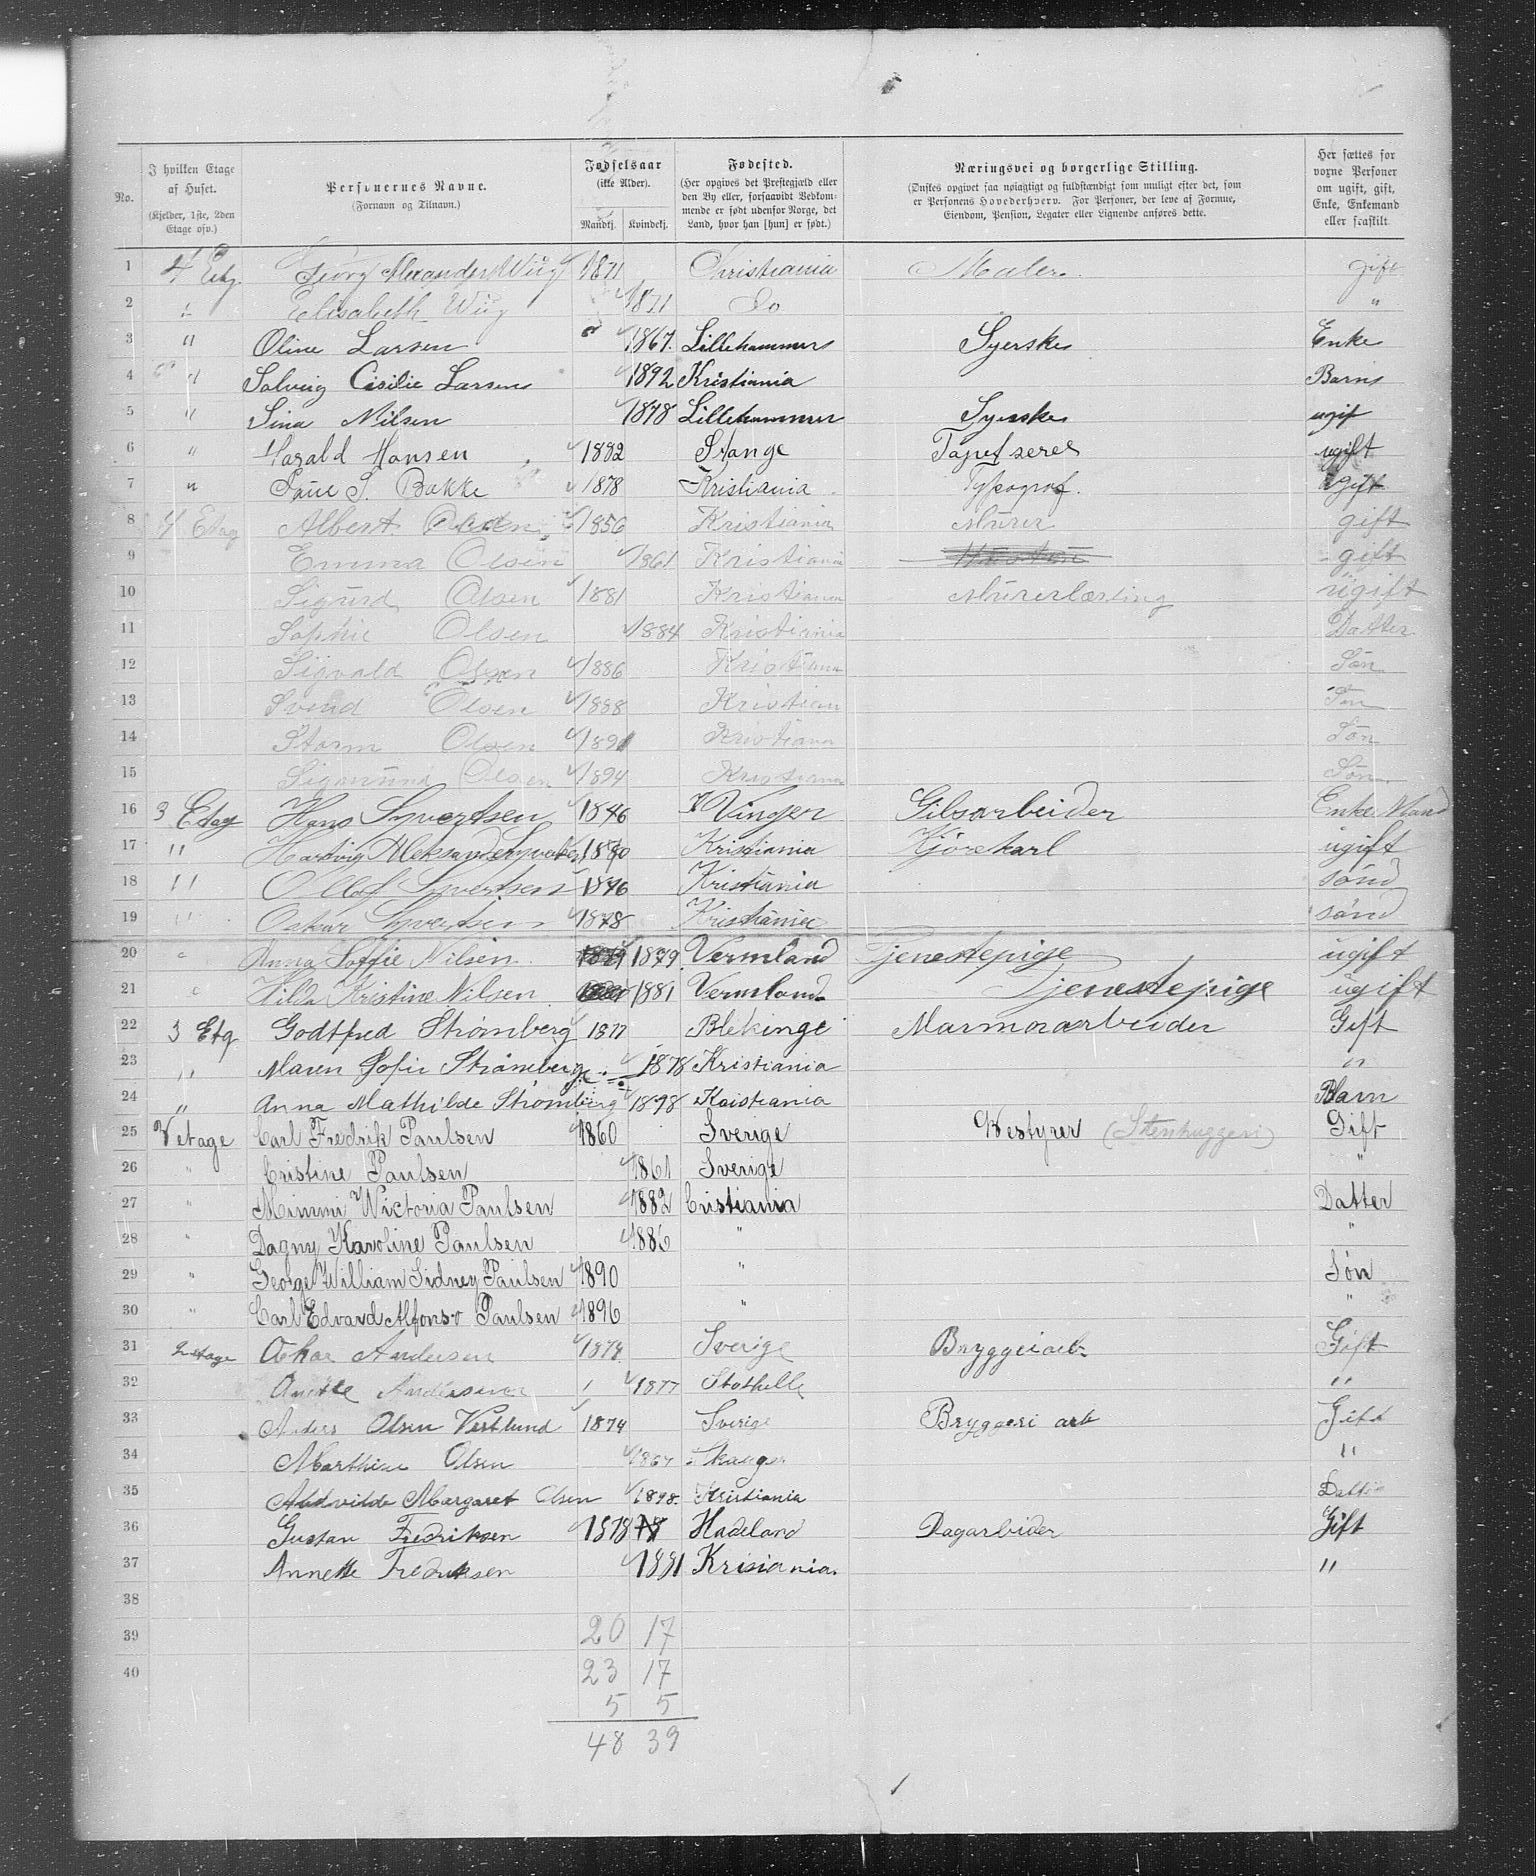 No. | I hvilken Etage af Huset. (Kjelder, 1ste, 2den Etage osv.) | Personernes Navne. (Fornavn og Tilnavn.) | Fødselsaar (ikke Alder). Mandkj. Kvindekj. | Fødested. (Her opgives det Prestegjæld eller den By eller, forsaavidt Vedkommende er født udenfor Norge, det Land, hvor han [hun] er født.) | Næringsvei og borgerlige Stilling. (Ønskes opgivet saa nøiagtigt og fuldstændigt som muligt efter det, som er Personens Hovederhverv. For Personer, der leve af Formue, Eiendom, Pension, Legater eller Lignende anføres dette.) | Her sættes for voxne Personer om ugift, gift, Enke, Enkemand eller fraskilt.
1 4 Etg. Georg Alexander Wiig 1871 Christiania Maler gift
2 " Elisabeth Wiig 1871 Do "
3 " Oline Larsen 1867. Lillehammer Syerske Enke
4 " Solveig Cisilie Larsen 1892 Kristiania Barn
5 " Sina Nilsen 1878 Lillehammer Syerske ugif
6 " Harald Hansen 1882 Stange Tapetserer ugift
7 " S. Bakke 1878 Kristiania Typograf. Ugift
8 4 Etag Albert Olsen 1856 Kristiania Murer gift
9 Emma Olsen 1861 Kristiania gift
10 Sigurd Olsen 1881 Kristiania Murerlærling ugift
11 Sophie Olsen 1884 Kristiania Datter
12 Sigvald Olsen 1886 Kristiania Søn
13 Svend Olsen 1888 Kristian Søn
14 Storm Olsen 1891 Kristiana Søn
15 Sigmund Olsen 1894 Kristiana Søn
16 3 Etag Hans Syvertsen 1846 Vinger Gibsarbeider Enke Mand
17 " Hardvig Aleksander 1870 Kristiania Kjørekarl ugift
18 " Olaf Syvertsen 1876 Kristiania sønd
19 " Oskar Syvertsen 1878 Kristiania sønd
20 " Anna Soffie Nilsen 1879 Vermland Tjenestepige ugift
21 " Hilda Kristine Nilsen 1881 Vermland Tjenestepige ugift
22 3 Etg Godtfred Strømberg 1877 Blekinge Marmorarbeider Gift
23 " Maren Sofie Strømberg 1878 Kristiania "
24 " Anna Mathilde Strømberg 1898 Kristiania Barn
25 V etage Carl Fredrik Paulsen 1860 Sverige Bestyrer (Stenhuggeri) Gift
26 " Cristine Paulsen 1861 Sverige "
27 " Mimmi Wictoria Paulsen 1882 Cristiania Datter
28 " Dagny Karoline Paulsen 1886 " "
29 " George William Sidney Paulsen 1890 " Søn
30 " Carl Edvard Alfonso Paulsen 1896 " "
31 2 etage Oskar Andersen 1878 Sverige Bryggeiarb. Gift
32 Anette Andersen 1877 Stathelle "
33 Anders Olsen Vestlund 1874 Sverige Bryggeri arb Gift
34 Marthine Olsen 1867 "
35 Margaret Olsen 1898. Kristiania Datter
36 Gustav Fredriksen 1878 Hadeland Dagarbider Gift
37 Annette Fredriksen 1881 Krisiania. "
38
39 20 17
40 23 17
5 5
48 39